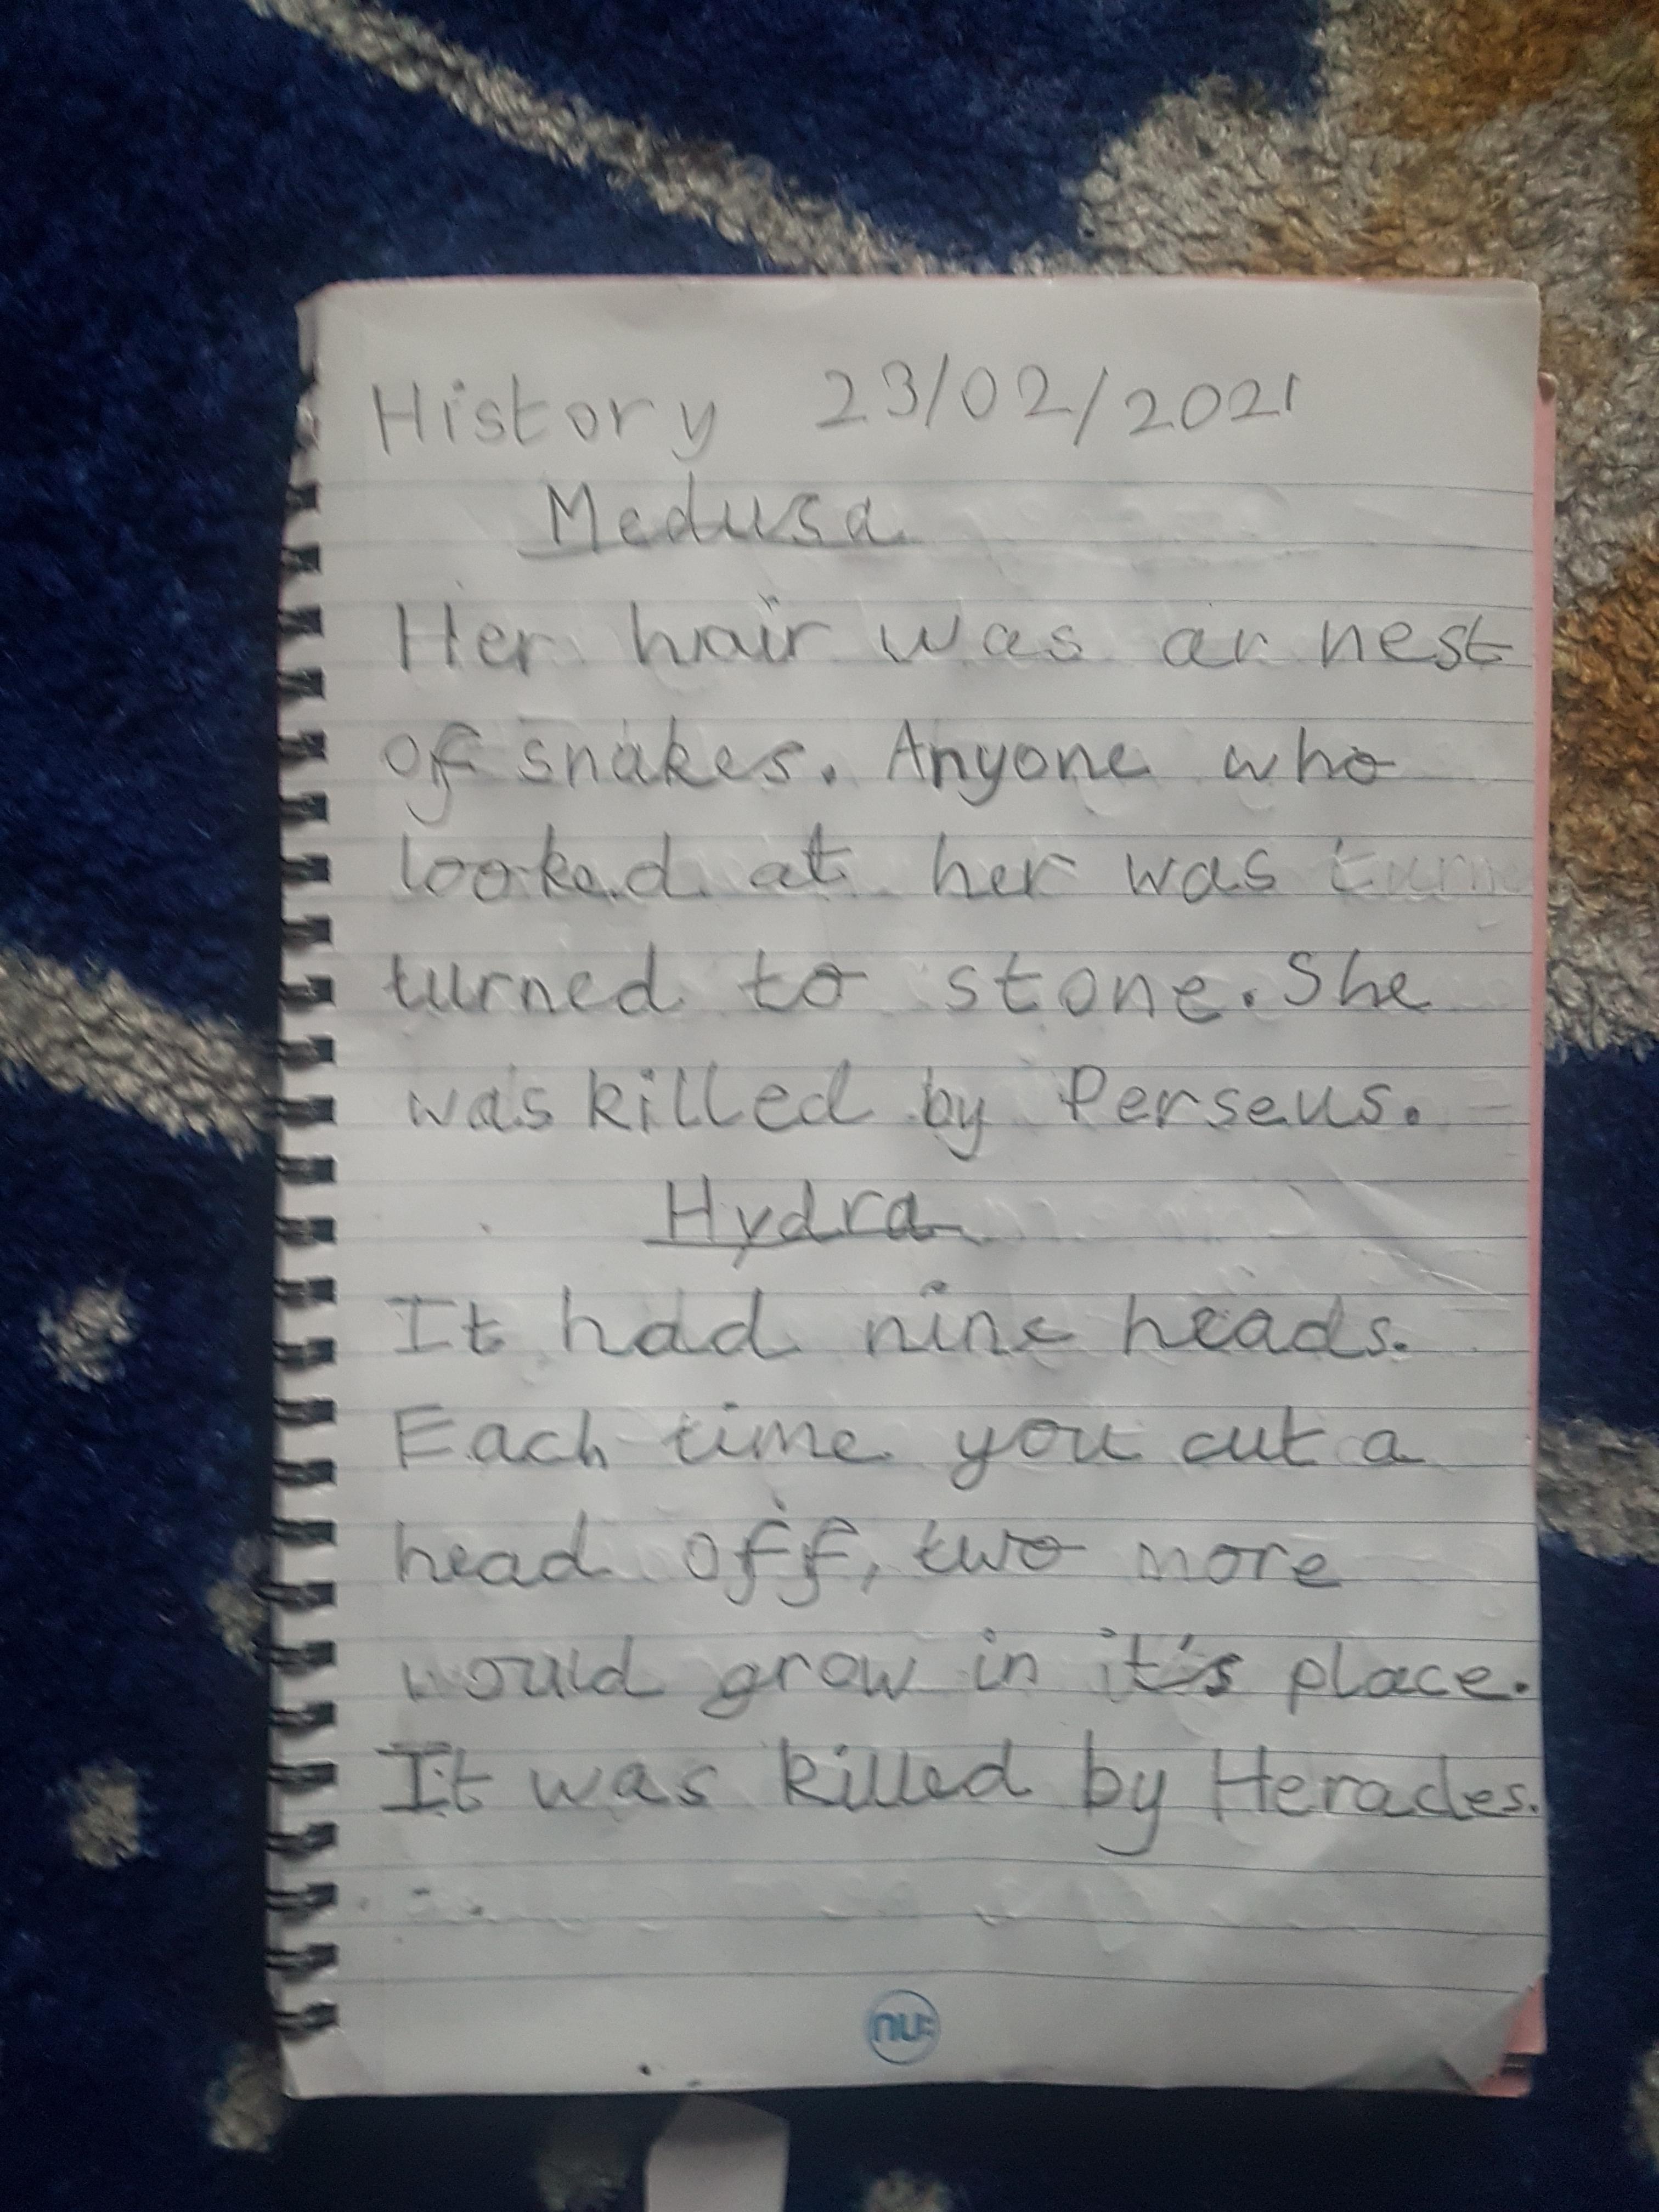 History 23/02/2021
Medusa
Her hair was ar nest
of snakes. Anyone who
looked at her was turne
turned to stone. She
was killed by Perseus.
Hydra
It had nine heads.
Each time you cut a
head off, two more
would grow in it's place.
It was killed by Heracles.
nu: